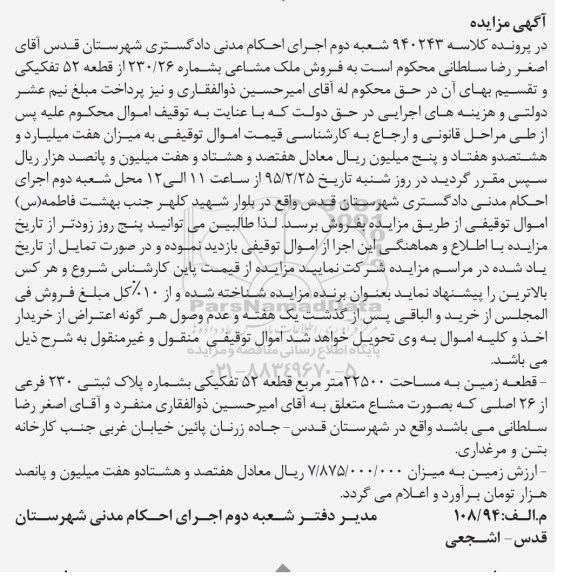 آگهی مزایده
در پرونده کلاسه ۹۴۰۲۴۳ شعبه دوم اجرای احکام مدنی دادگستری شهرستان قدس آقای
اصغر رضا سلطانی محکوم است به فروش ملک مشاعی بشماره ۲۳۰/۲۶ از قطعه ۵۲ تفکیکی
و تقسیم بهای آن در حق محکوم له آقای امیرحسین ذوالفقاری و نیز پرداخت مبلغ نیم عشر
دولتی و هزینه های اجرایی در حق دولت که با عنایت به توقیف اموال محکوم علیه پس
از طی مراحل قانونی و ارجاع به کارشناسی قیمت اموال توقیفی به میزان هفت میلیارد و
هشتصدو هفتاد و پنج میلیون ریال معادل هفتصد و هشتاد و هفت میلیون و پانصد هزار ریال
سپس مقرر گردید در روز شنبه تاریخ ۹۵/۲/۲۵ از ساعت ۱۱ الی۱۲ محل شعبه دوم اجرای
احکام مدنی دادگستری شهرستان قدس واقع در بلوار شهید کلهر جنب بهشت فاطمه(س)
اموال توقیفی از طریق مزایده بفروش برسد. لذا طالبین می توانید پنج روز زودتر از تاریخ
مزایده با اطلاع و هماهنگی این اجرا از اموال توقیفی بازدید نموده و در صورت تمایل از تاریخ
یاد شده در مراسم مزایده شرکت نمایید مزایده از قیمت پاین کارشناس شروع و هر کس
بالاترین را پیشنهاد نماید بعنوان برنده مزایده شناخته شده و از ۱۰٪کل مبلغ فروش فی
المجلس از خرید و الباقی پس از گذشت یک هفته و عدم وصول هر گونه اعتراض از خریدار
اخذ و کلیه اموال به وی تحویل خواهد شد اموال توقیفی منقول و غیرمنقول به شرح ذیل
می باشد.
- قطعه زمین به مساحت ۲۲۵۰۰متر مربع قطعه ۵۲ تفکیکی بشماره پلاک ثبتی ۲۳۰ فرعی
از ۲۶ اصلی که بصورت مشاع متعلق به آقای امیرحسین ذوالفقاری منفرد و آقای اصغر رضا
سلطانی می باشد واقع در شهرستان قدس- جاده زرنان پائین خیابان غربی جنب کارخانه
بتن و مرغداری.
- ارزش زمین به میزان ۷/۸۷۵/۰۰۰/۰۰۰ ریال معادل هفتصد و هشتادو هفت میلیون و پانصد
هزار تومان برآورد و اعلام می گردد.
م.الف:۱۰۸/۹۴ مدیر دفتر شعبه دوم اجرای احکام مدنی شهرستان
قدس- اشجعی
ParsNamadData
پایگاه اطلاع رسانی مناقصه و مزایده
۰۲۱-۸۸۳۴۹۶۷۰-۵